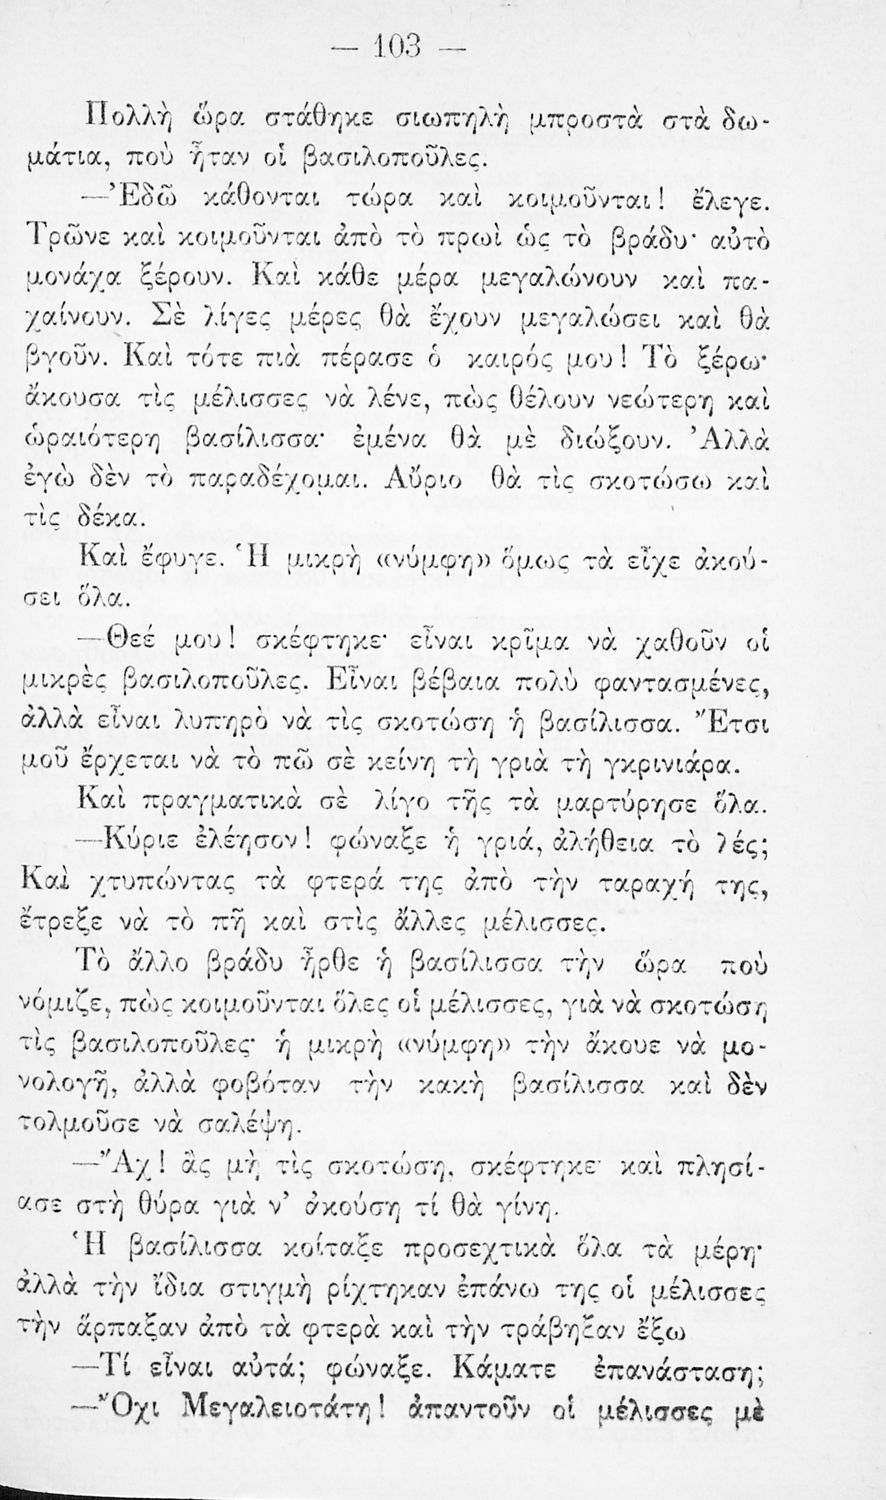 — 103 —
Πολλὴ ὥρα στάθηκε σιωπηλὴ μπροστὰ στὰ δω-
μάτια, ποὺ ἦταν οἱ βασιλοποῦλες.
—Ἐδῶ κάθονται τώρα καὶ κοιμοῦνται! ἔλεγε.
Τρῶνε καὶ κοιμοῦνται ἀπὸ τὸ πρωὶ ὡς τὸ βράδυ· αὐτὸ
μονάχα ξέρουν. Καὶ κάθε μέρα μεγαλώνουν καὶ πα-
χαίνουν. Σὲ λίγες μέρες θὰ ἔχουν μεγαλώσει καὶ θὰ
βγοῦν. Καὶ τότε πιὰ πέρασε ὁ καιρός μου! Τὸ ξέρω·
ἄκουσα τὶς μέλισσες νὰ λένε, πὼς θέλουν νεώτερη καὶ
ὡραιότερη βασίλισσα· ἐμένα θὰ μὲ διώξουν. Ἀλλὰ
ἐγὼ δὲν τὸ παραδέχομαι. Αὔριο θὰ τὶς σκοτώσω καὶ
τὶς δέκα.
Καὶ ἔφυγε. Ἡ μικρὴ «νύμφη» ὅμως τὰ εἶχε ἀκού-
σει ὅλα.
—Θεέ μου! σκέφτηκε· εἶναι κρῖμα νὰ χαθοῦν οἱ
μικρὲς βασιλοποῦλες. Εἶναι βέβαια πολὺ φαντασμένες,
ἀλλὰ εἶναι λυπηρὸ νὰ τὶς σκοτώση ἡ βασίλισσα. Ἔτσι
μοῦ ἔρχεται νὰ τὸ πῶ σὲ κείνη τὴ γριὰ τὴ γκρινιάρα.
Καὶ πραγματικὰ σὲ λίγο τῆς τὰ μαρτύρησε ὅλα.
—Κύριε ἐλέησον! φώναξε ἡ γριά, ἀλήθεια τὸ λές;
Καὶ χτυπώντας τὰ φτερά της ἀπὸ τὴν ταραχή της,
ἔτρεξε νὰ τὸ πῆ καὶ στὶς ἄλλες μέλισσες.
Τὸ ἄλλο βράδυ ἦρθε ἡ βασίλισσα τὴν ὥρα ποὺ
νόμιζε, πὼς κοιμοῦνται ὅλες οἱ μέλισσες, γιὰ νὰ σκοτώση
τὶς βασιλοποῦλες· ἡ μικρὴ «νύμφη» τὴν ἄκουε νὰ μο-
νολογῆ, ἀλλὰ φοβόταν τὴν κακὴ βασίλισσα καὶ δὲν
τολμοῦσε νὰ σαλέψη.
—Ἄχ! ἂς μὴ τὶς σκοτώση, σκέφτηκε· καὶ πλησί-
ασε στὴ θύρα γιὰ ν’ ἀκούση τί θὰ γίνη.
Ἡ βασίλισσα κοίταξε προσεχτικὰ ὅλα τὰ μέρη·
ἀλλὰ τὴν ἴδια στιγμὴ ρίχτηκαν ἐπάνω της οἱ μέλισσες
τὴν ἅρπαξαν ἀπὸ τὰ φτερὰ καὶ τὴν τράβηξαν ἔξω
—Τί εἶναι αὐτά; φώναξε. Κάματε ἐπανάσταση;
—Ὄχι Μεγαλειοτάτη! ἀπαντοῦν οἱ μέλισσες μὲ